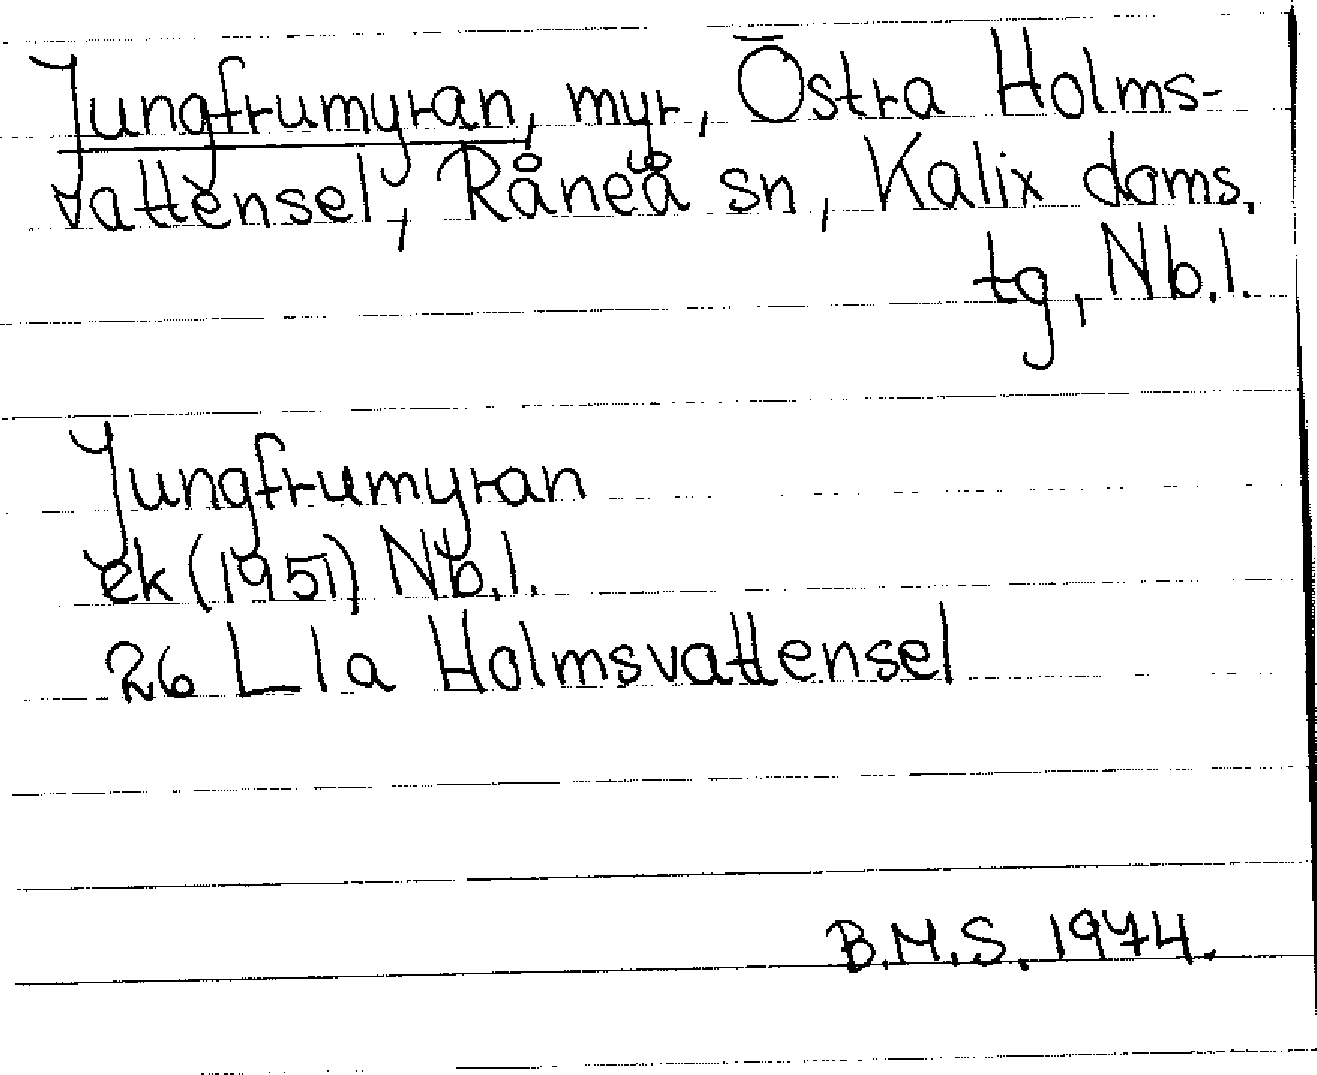 Jungfrumyran, myr, Östra Holms-
vattensel, Råneå sn, Kalix doms.
tg, Nb.l.
Jungfrumyran
ek (1951) Nb.l.
26 L 1a Holmsvattensel
B.M.S. 1974.